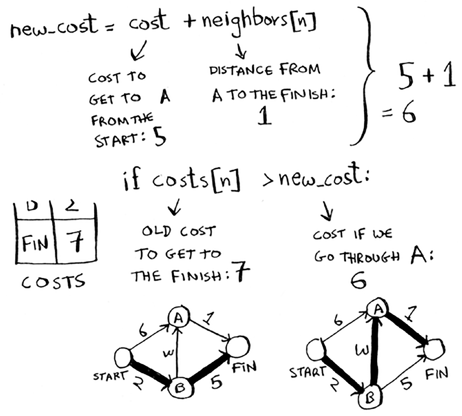 new_cost = cost + neighbors[n]
COST TO
GET TO A
FROM THE
START: 5
DISTANCE FROM
A TO THE FINISH:
1
5 + 1
= 6
if costs[n] > new_cost:
2
FIN 7
COSTS
OLD COST
TO GET TO
THE FINISH: 7
COST IF WE
GO THROUGH A:
6
A
6
1
W
START
2
B
5
FIN
A
6
1
W
START
2
B
5
FIN